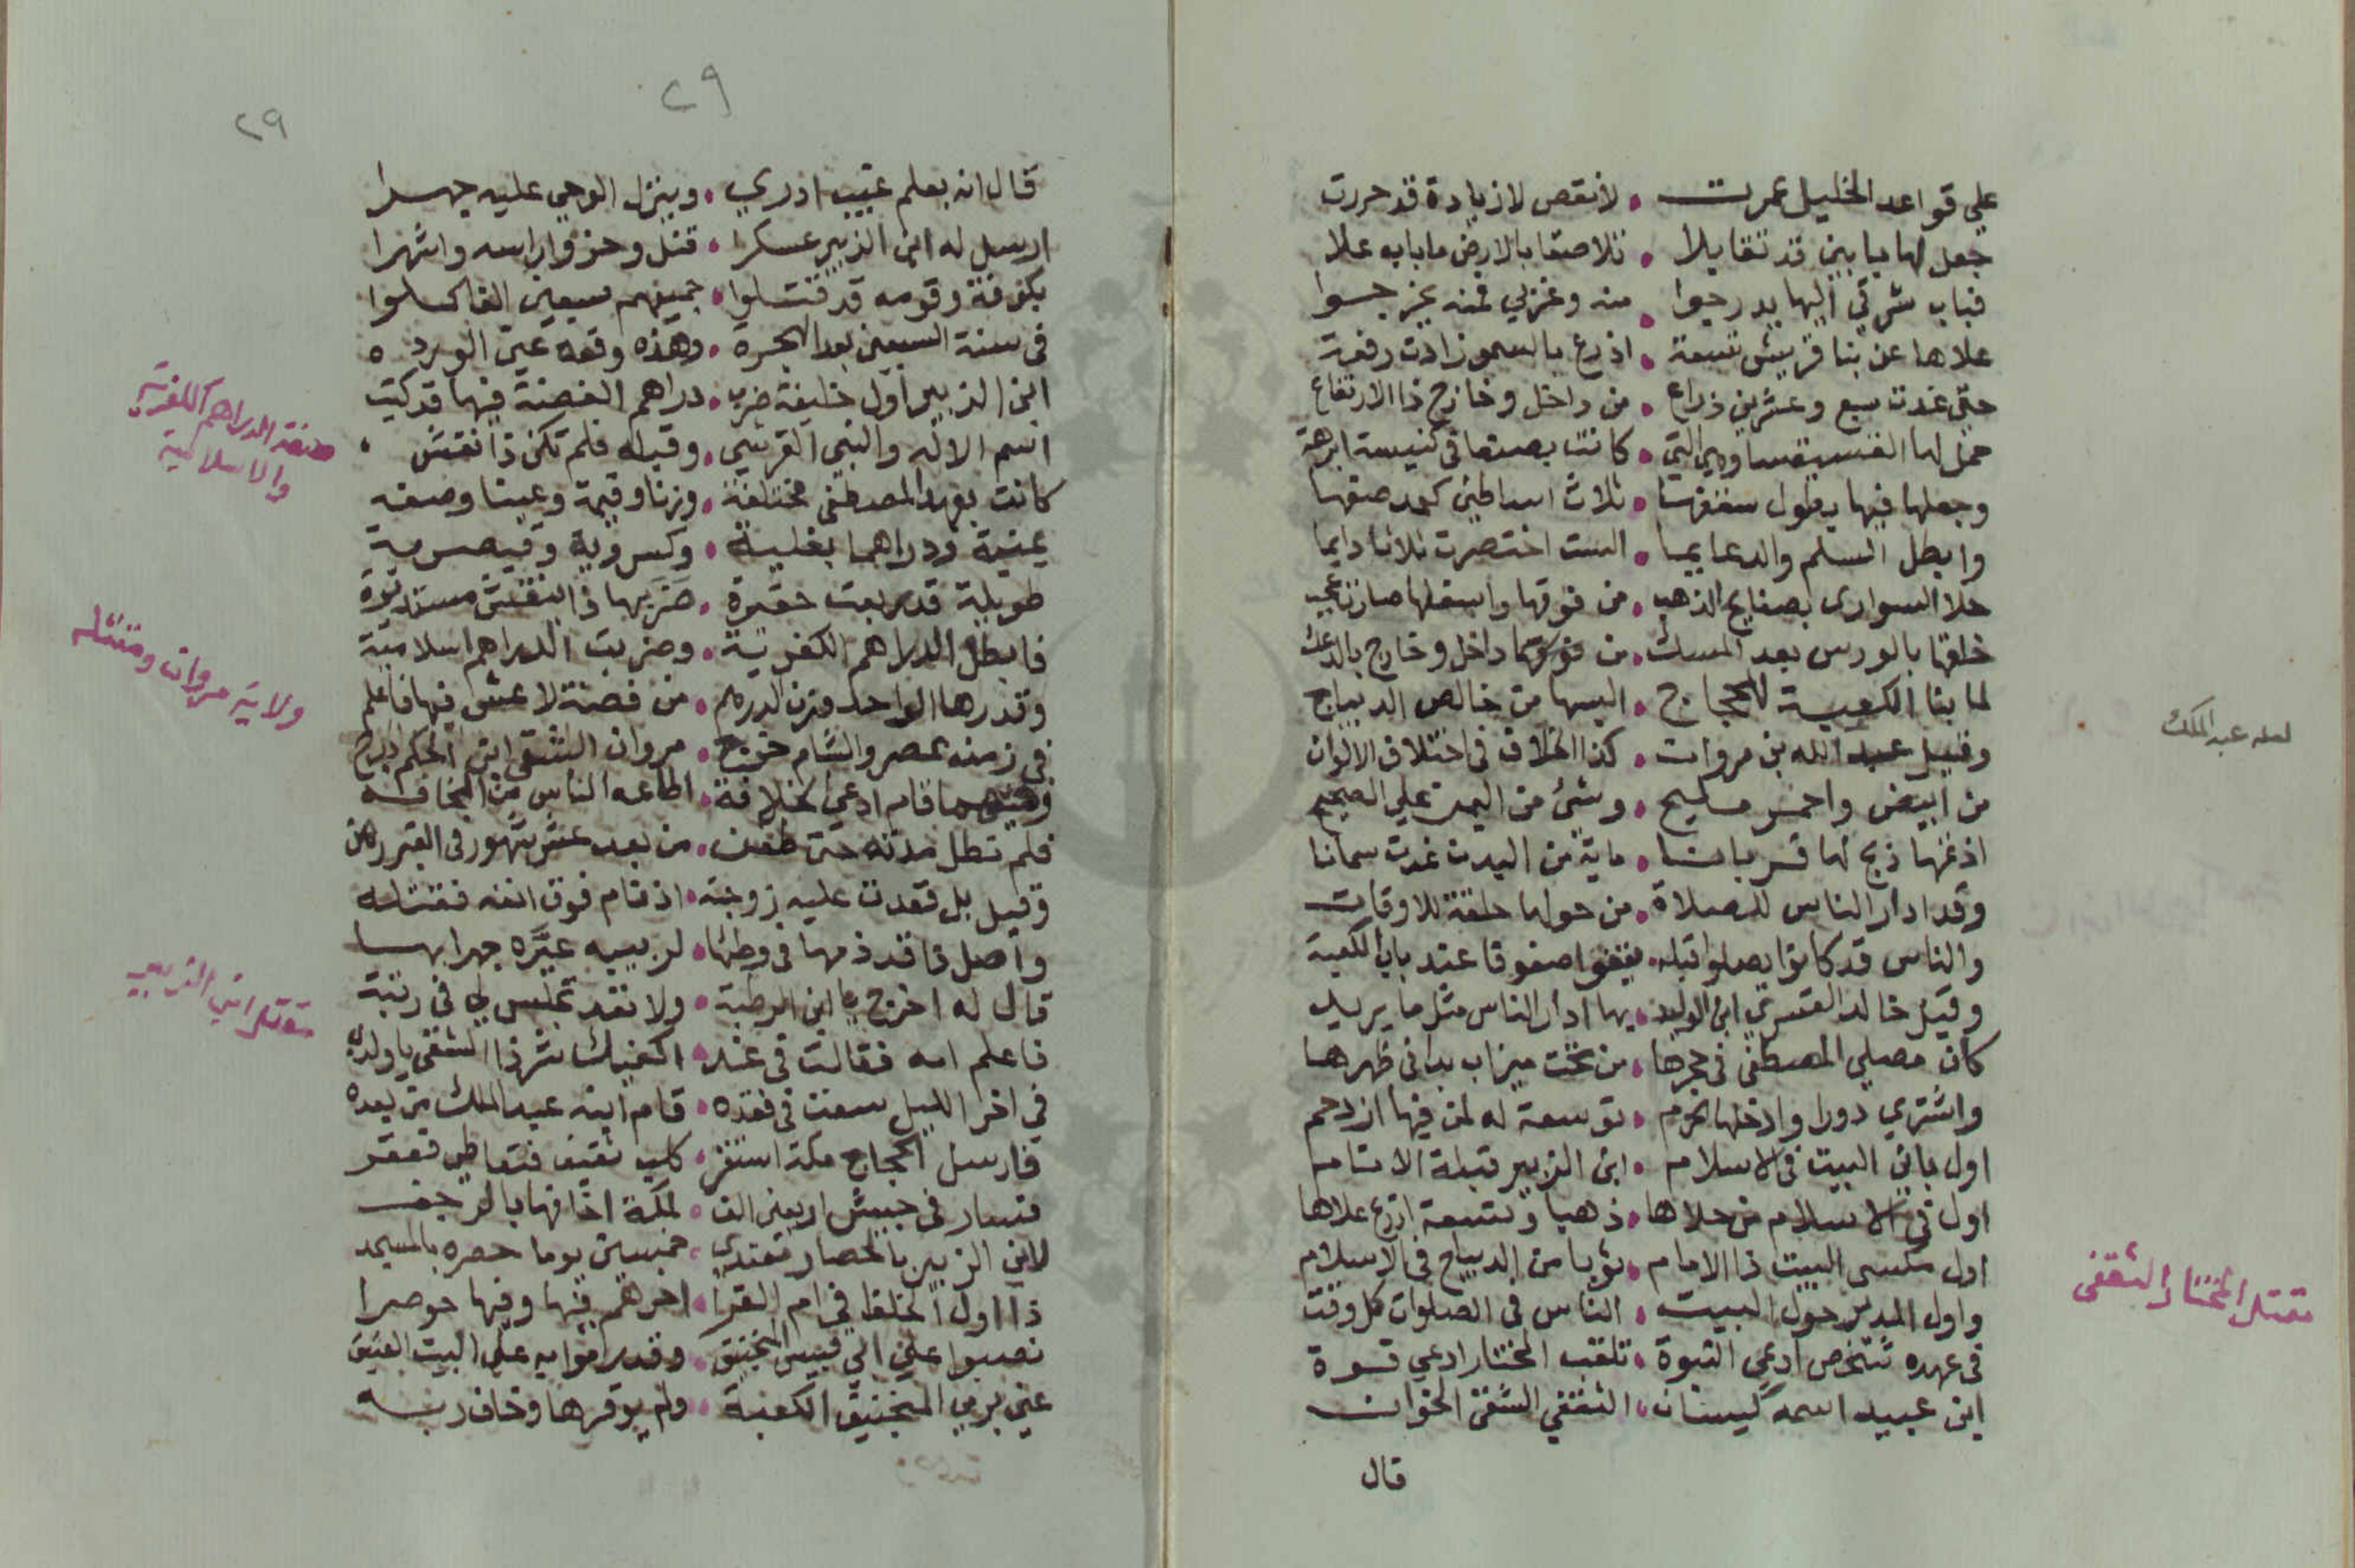 علي قواعد الخليل عمرت . لا نقص لا زيادة قد حررت
جعل لها بابين قد تقابلا . تلاصقا بالارض ما بابه علا
فباب شرقي اليها يدرجوا . منه وغربي فمنه يخرجوا
علاها عن بنا قريش تسعة . اذرع بالسمو زادت رفعة
حتى غدت سبع وعشرين ذراع . من داخل وخارج ذا الارتفاع
حمل لها الفسيفسا وهي التي . كانت بصنعا في كنيسة ابرهة
وجعلها فيها بطول سقفها . ثلاث اساطين كعمد صفها
وابطل السلم والدعايما . الست اختصرت ثلاثا دايما
حلا السواري بصفايح الذهب . من فوقها واسفلها صارت عجب
خلقها بالورس بعد المسك . من فوقها داخل وخارج بالدعك
لما بنا الكعبة للحجاج . البسها من خالص الديباج
وقيل عبد الله بن مروان . كذا الخلاف في اختلاف الالوان
من ابيض واحمر مليح . وشئ من اليمن علي الصحيح
اذ عنها ذبح لها قربانا . ماية من البدن غدت سمانا
وقد ادار الناس للصلاة . من حولها حلقة للاوقات
والناس قد كانوا يصلوا قبله . يقفوا صفوفا عند باب الكعبة
وقيل خالد القسري ابن الوليد . بها ادار الناس مثل ما يريد
كان مصلي المصطفى في حجرها . من تحت ميزاب بدا في ظهرها
واشتري دورا وادخلها الحرم . توسعة له لمن فيها ازدحم
اول باني البيت في الاسلام . ابن الزبير قبلة الانام
اول في الاسلام من حلاها . ذهبا وتسعة اذرع علاها
اول مكسي البيت ذا الامام . ثوبا من الديباج في الاسلام
واول المدير حول البيت . الناس في الصلوات كل وقت
في عهده شخص ادعي النبوة . تلقب المختار ادعي قوة
ابن عبيد اسمه كيسان . الثقفي الشقي الخوان
قال
لعله عبد الملك
مقتل المختار الثقفي
٢٩
٢٩
قال انه يعلم غيب ادري . وينزل الوحي عليه جهرا
ارسل له ابن الزبير عسكرا . قتل وحزوا راسه واشهرا
بكوفة وقومه قد قتلوا . جميعهم سبعين الفا كملوا
في سنة السبعين بعد الهجرة . وهذه وقعه عين الورده
ابن الزبير اول خليفة ضرب . دراهم الفضة فيها قد كتب
اسم الاله والنبي القرشي . وقبله فلم تكن ذا نقش
كانت بعهد المصطفى مختلفة . وزنا وقيمة وعينا وصفه
يمنية ودراهما بغلية . وكسروية وقيصرية
طويلة قد ربعت حقيرة . ضربها ذا النقش مستديرة
فابطل الدراهم الكفرية . وضربت الدراهم اسلامية
وقدرها الواحد وزن الدرهم . من فضة لا غش فيها فاعلم
في زمنه بمصر والشام خرج . مروان الشقي ابن الحكم
قام ادعى الخلافة . اطاعه الناس من المخافه
فلم تطل مدته حتى طعن . من بعد عشر شهور في القبر رهن
وقيل بل قعدت عليه زوجته . اذ نام فوق انفه فقتلته
واصل ذا قد ذمها في وطئها . لربيبه عيره جهرا بها
قال له اخرج يا ابن الرطبة . ولا تقد تجلس لي في رتبة
فاعلم امه فقالت في غد . اكفيك شر ذا الشقي يا ولدي
في اخر الليل سعت في فقده . قام ابنه عبد الملك من بعده
فارسل الحجاج مكة استقر . كلب ثقيف فتعاطي فعقر
فسار في جيش اربعين الف . لمكة اخافها بالرجف
لابن الزبير بالحصار معتدي . خمسين يوما حصره بالمسجد
ذا اول الخلفا في ام القرا . اخرهم فيها وفيها حوصرا
نصبوا علي ابي قبيس المنجنيق . وقد رموا به علي البيت العتيق
عني برمي المنجنيق الكعبة . ولم يوقرها وخاف ربه
صفة الدراهم الكفرية
والاسلامية
ولاية مروان ومقتله
مقتل ابن الزبير